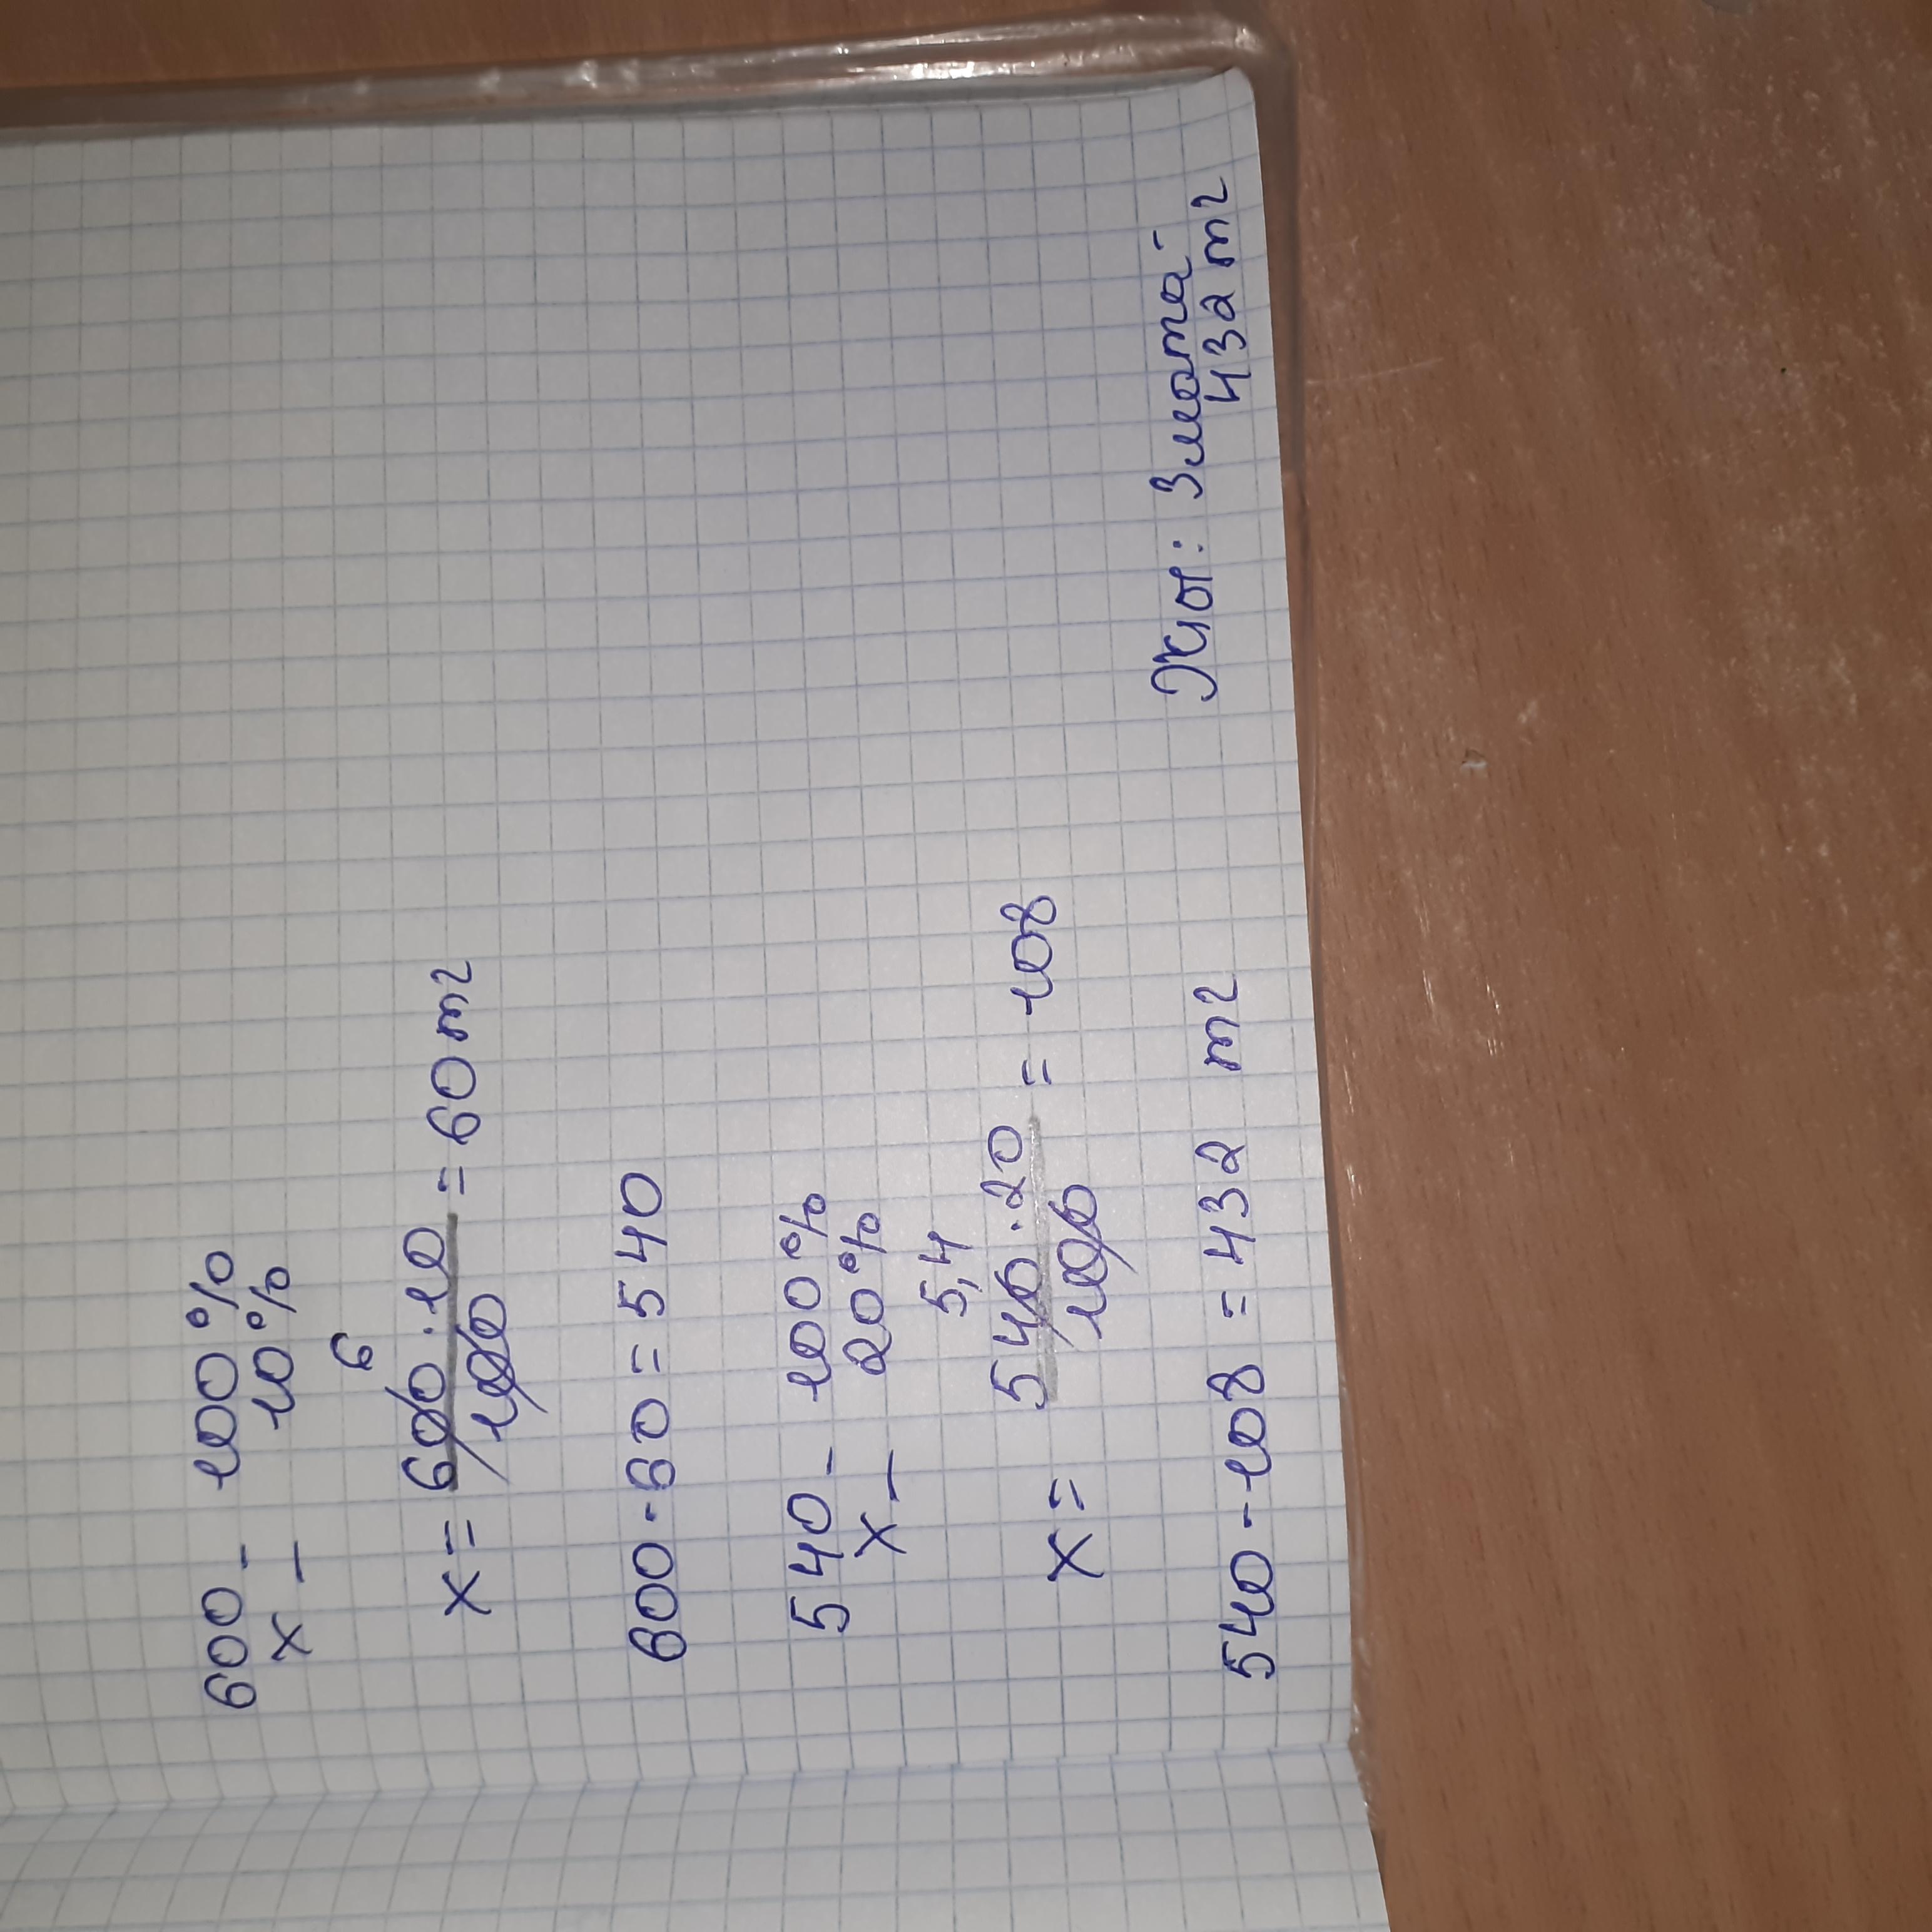 600 - 100%
x - 10%
6
x = 600·10/100 = 60 тг
600 - 60 = 540
540 - 100%
x - 20%
5,4
x = 540·20/100 = 108
540 - 108 = 432 тг
432 тг